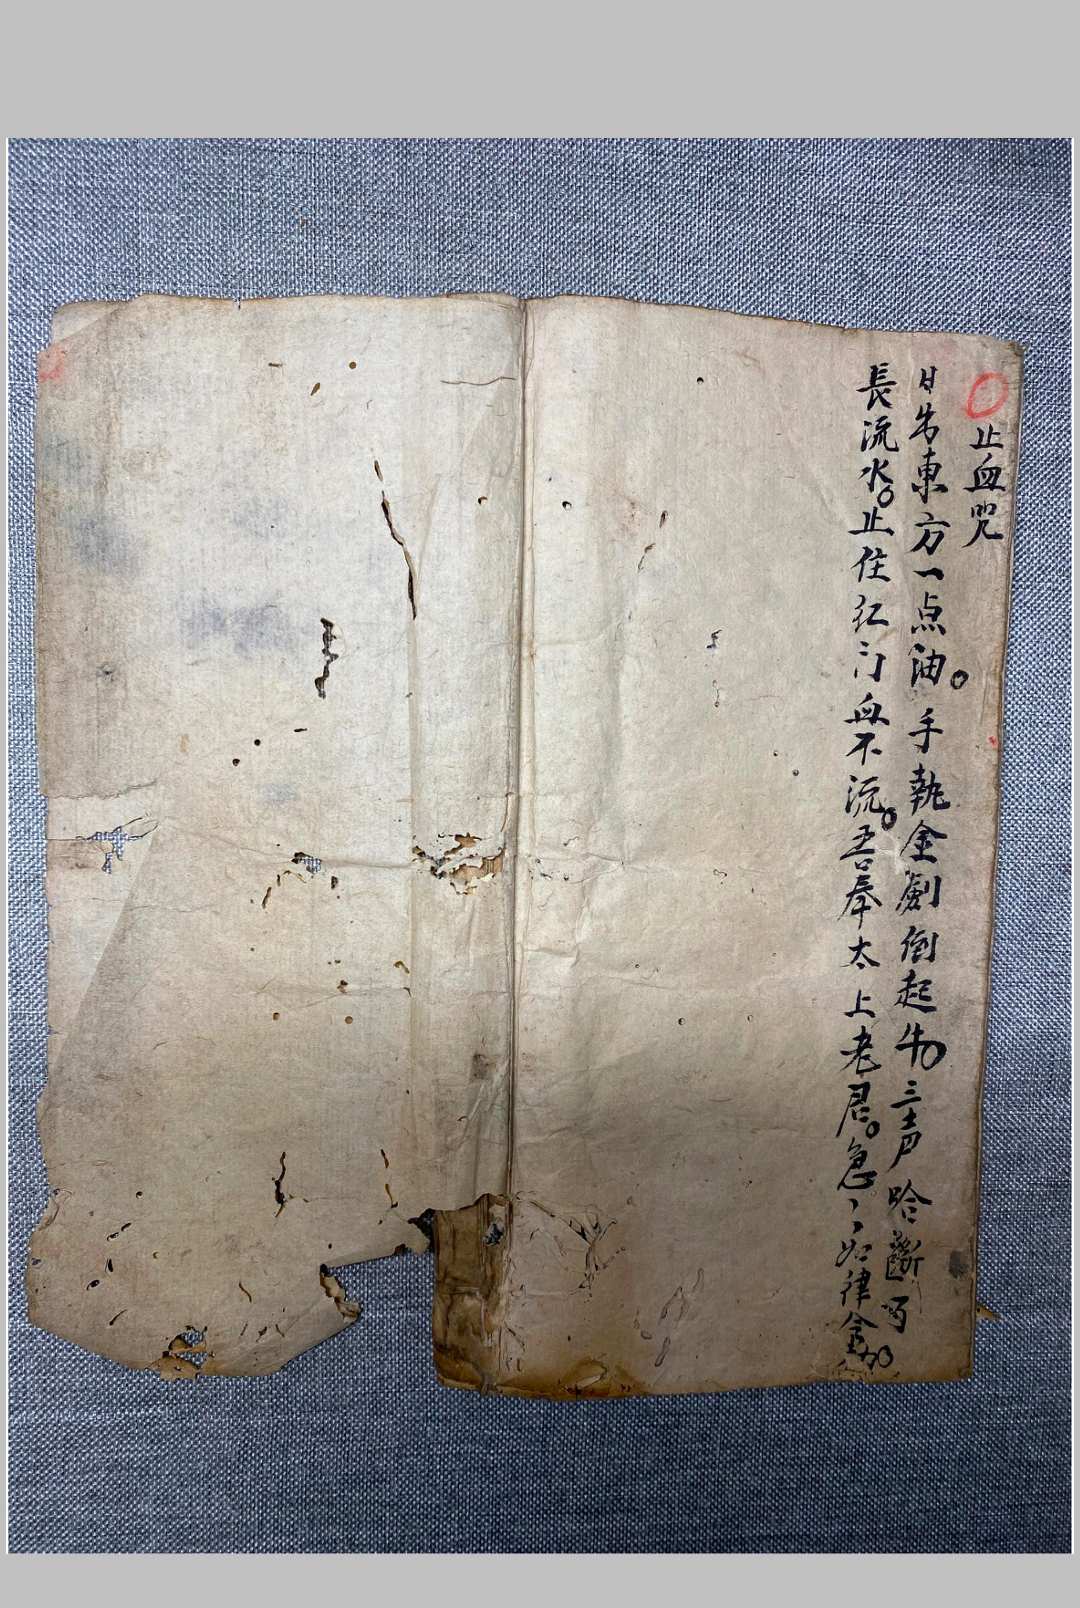 止血咒
日出東方一点油。手執金劍倒起牛三声哈斷
長流水。止住紅门血不流。吾奉太上老君。急〻如律令